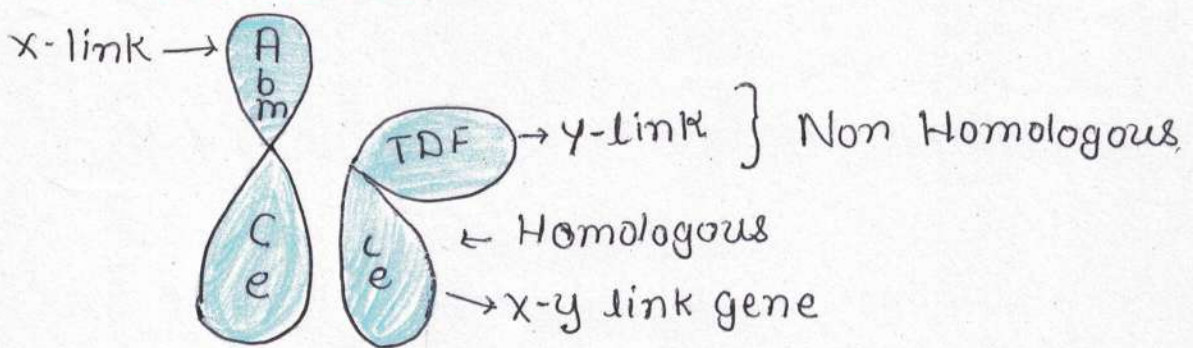 x-link →
A
b
m
TDF
→ y-link } Non Homologous.
C
e
c
e
← Homologous
→ x-y link gene